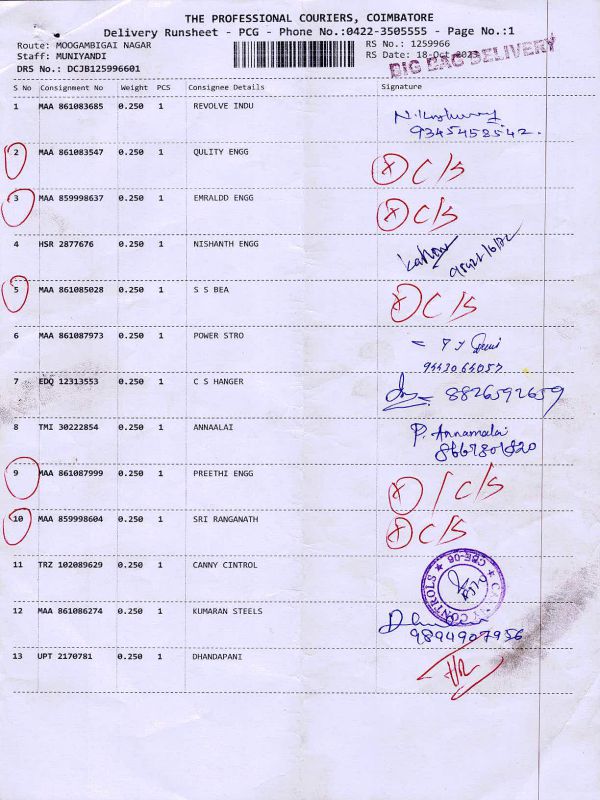 THE PROFESSIONAL COURIERS, COIMBATORE
Delivery Runsheet - PCG - Phone No.:0422-3505555 - Page No.:1
Route: MOOGAMBIGAI NAGAR RS No.: 1259966
Staff: MUNIYANDI RS Date: 18-Oct-2023
DRS No.: DCJB125996601 BIG BAG DELIVERY
S No Consignment No Weight PCS Consignee Details Signature
1 MAA 861083685 0.250 1 REVOLVE INDU
9345458542.
2 MAA 861083547 0.250 1 QULITY ENGG X C/S
3 MAA 859998637 0.250 1 EMRALDD ENGG X C/S
4 HSR 2877676 0.250 1 NISHANTH ENGG
5 MAA 861085028 0.250 1 S S BEA X C/S
6 MAA 861087973 0.250 1 POWER STRO
9443064057
7 EDQ 12313553 0.250 1 C S HANGER 8826592659
8 TMI 30222854 0.250 1 ANNAALAI P. Annamalai
9 MAA 861087999 0.250 1 PREETHI ENGG X / C/S
10 MAA 859998604 0.250 1 SRI RANGANATH X C/S
11 TRZ 102089629 0.250 1 CANNY CINTROL CONTROLS CBE-06
12 MAA 861086274 0.250 1 KUMARAN STEELS
9894907956
13 UPT 2170781 0.250 1 DHANDAPANI